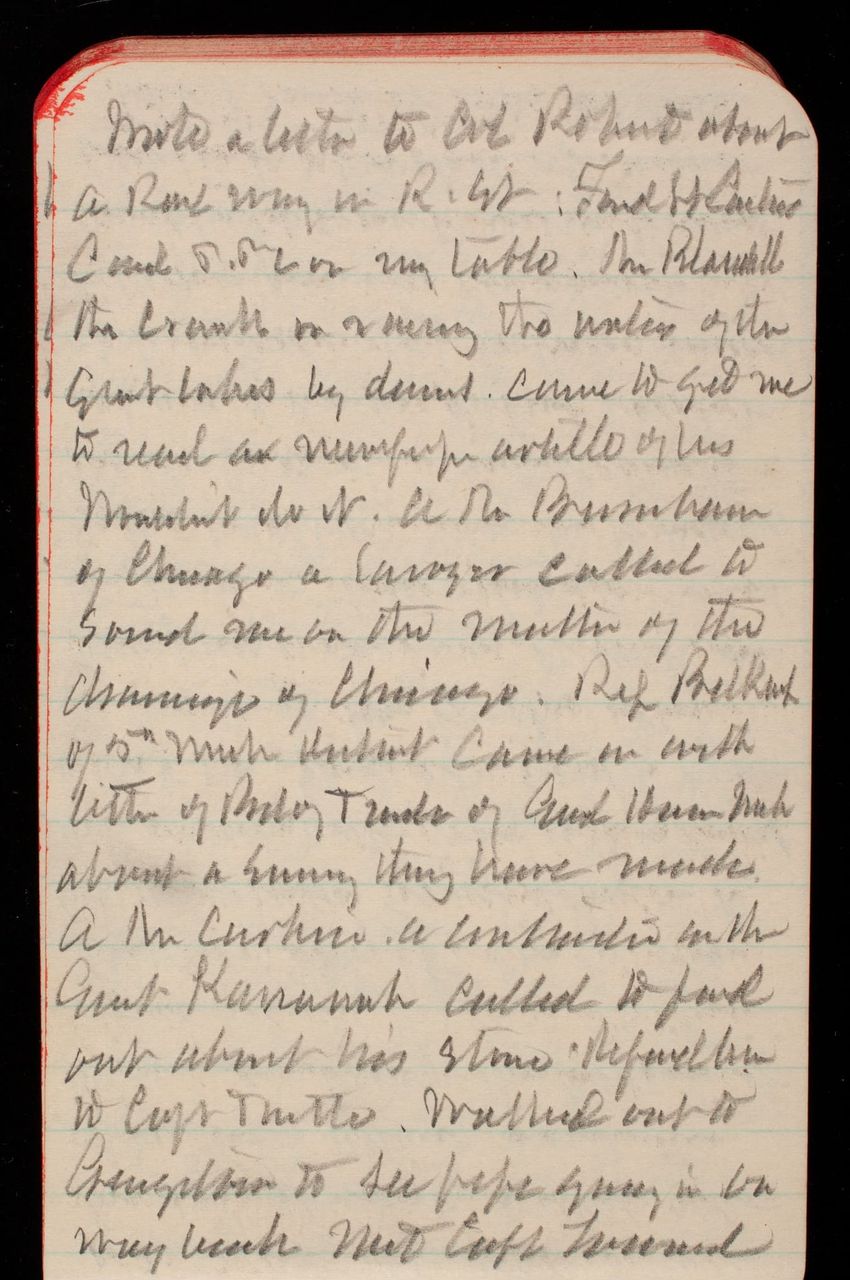 Wrote a letter to Col Robert about
a Road way in R. St : Found
Card on my table. Mr Blaisdell
the Crank on raising the waters of the
Great lakes by dams. came to get me
to read a newspaper article of his
Wouldn't do it. A Mr Burnham
of Chicago a Lawyer called to
Sound me on the matter of the
drainage of Chicago. Rep
of 5th Mich district Came in with
letter of Bd of Trade of Grand Haven Mich
about a Survey they have made
A Mr a contractor on the
Great Kanawha called to find
out about his Stone Refered him
to Capt Walked out to
to see pipe going in on
way back Met Capt